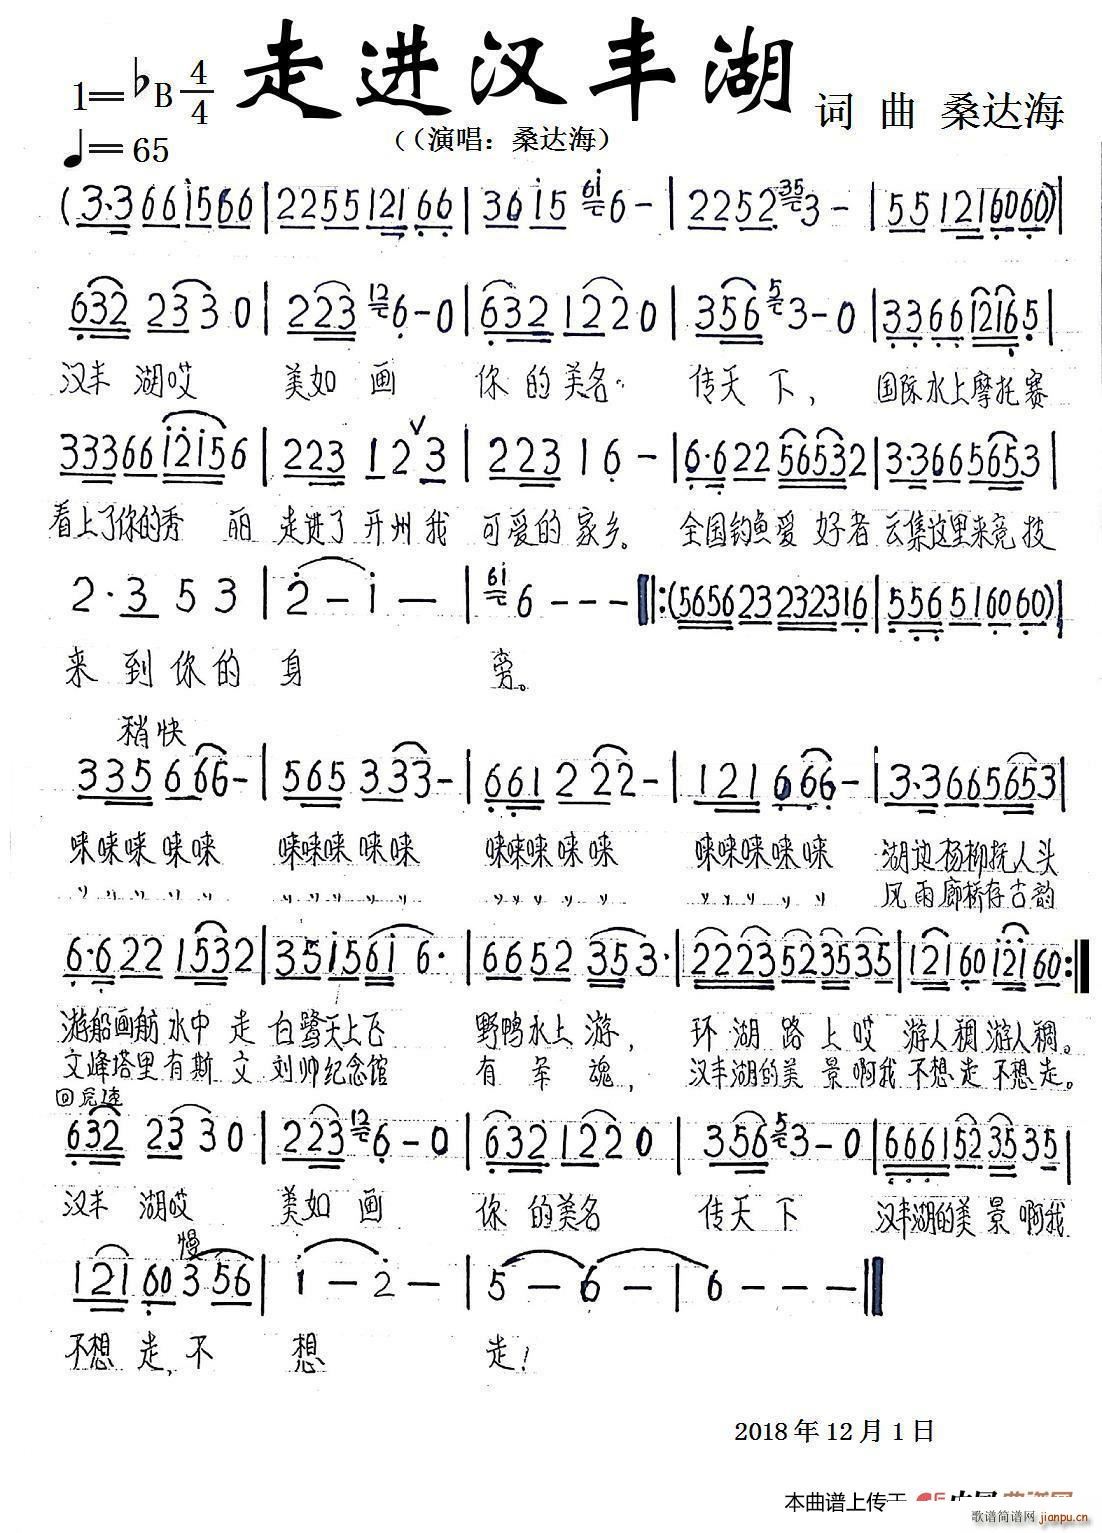 走进汉丰湖
1=♭B 4/4
词 曲 桑达海
♩=65
((演唱：桑达海)
(3·3 66 i5 66 | 22 55 121 66 | 36 i5 6 - | 22 52 3 - | 55 121 60 60) |
632 233 0 | 223 6 - 0 | 632 122 0 | 356 3 - 0 | 33 66 1216 5 |
汉丰 湖哎 美如 画 你 的美名 传天 下， 国际水上摩托赛
333 66 i2i5 6 | 223 12 3 | 223 1 6 - | 6·6 22 5653 2 | 3·3 66 565 3 |
看上了你的秀 丽 走进了 开州 我 可爱的 家乡。 全国钓鱼爱 好者 云集这里来竞 技
2·3 5 3 | 2 - i - | 6 - - - |: (5656 23 2323 16 | 556 51 60 60) |
来 到 你 的 身 旁。
稍快
335 6 66 - | 565 3 33 - | 661 2 22 - | 121 6 66 - | 3·3 66 565 3 |
唻唻唻 唻唻 唻唻唻 唻唻 唻唻唻 唻唻 唻唻唻 唻唻 湖边杨柳抚人头
〃 〃 〃 〃 〃 〃 〃 〃 〃 〃 〃 〃 〃 〃 〃 〃 〃 〃 〃 〃 风雨廊桥存古韵
6·6 22 153 2 | 35 i5 6i 6· | 66 52 35 3· | 2223 52 35 35 | 121 60 i2i 60 :|
游船画舫 水中 走 白鹭天上飞 野鸭水上游， 环 湖 路 上 哎 游人稠 游人稠。
文峰塔里有斯 文 刘帅纪念馆 有 军 魂， 汉丰湖的美 景啊我 不想走 不想走。
回原速
632 23 3 0 | 223 6 - 0 | 632 122 0 | 356 3 - 0 | 6661 52 35 35 |
汉丰 湖哎 美如 画 你 的美名 传天 下 汉丰湖的美 景 啊我
慢
121 60 3 56 | i - 2 - | 5 - 6 - | 6 - - - ‖
不想 走，不 想 走！
2018 年 12 月 1 日
本曲谱上传于
歌谱简谱网
jianpu.cn